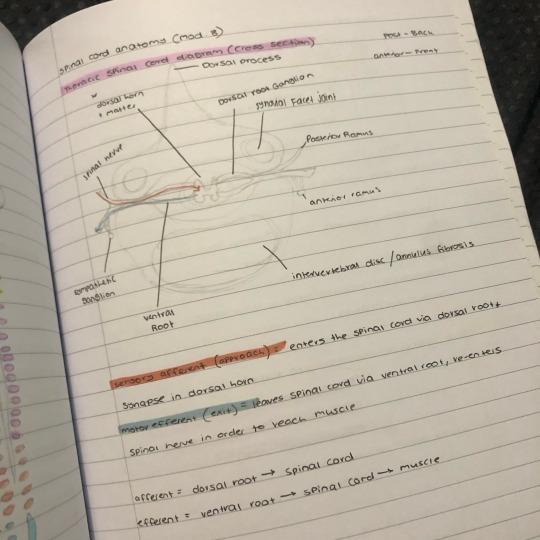 spinal cord anatomy (mod. 8)
Post - Back
anterior - Front
thoracic spinal cord diagram (cross section)
Dorsal process
dorsal horn
+ matter
Dorsal root Ganglion
synovial Facet joint
spinal nerve
Posterior Ramus
anterior ramus
sympathetic
Ganglion
ventral
Root
intervertebral disc / annulus fibrosis
sensory afferent (approach) = enters the spinal cord via dorsal root +
synapse in dorsal horn
motor efferent (exit) = leaves spinal cord via ventral root, re-enters
spinal nerve in order to reach muscle
afferent = dorsal root → spinal cord
efferent = ventral root → spinal cord → muscle